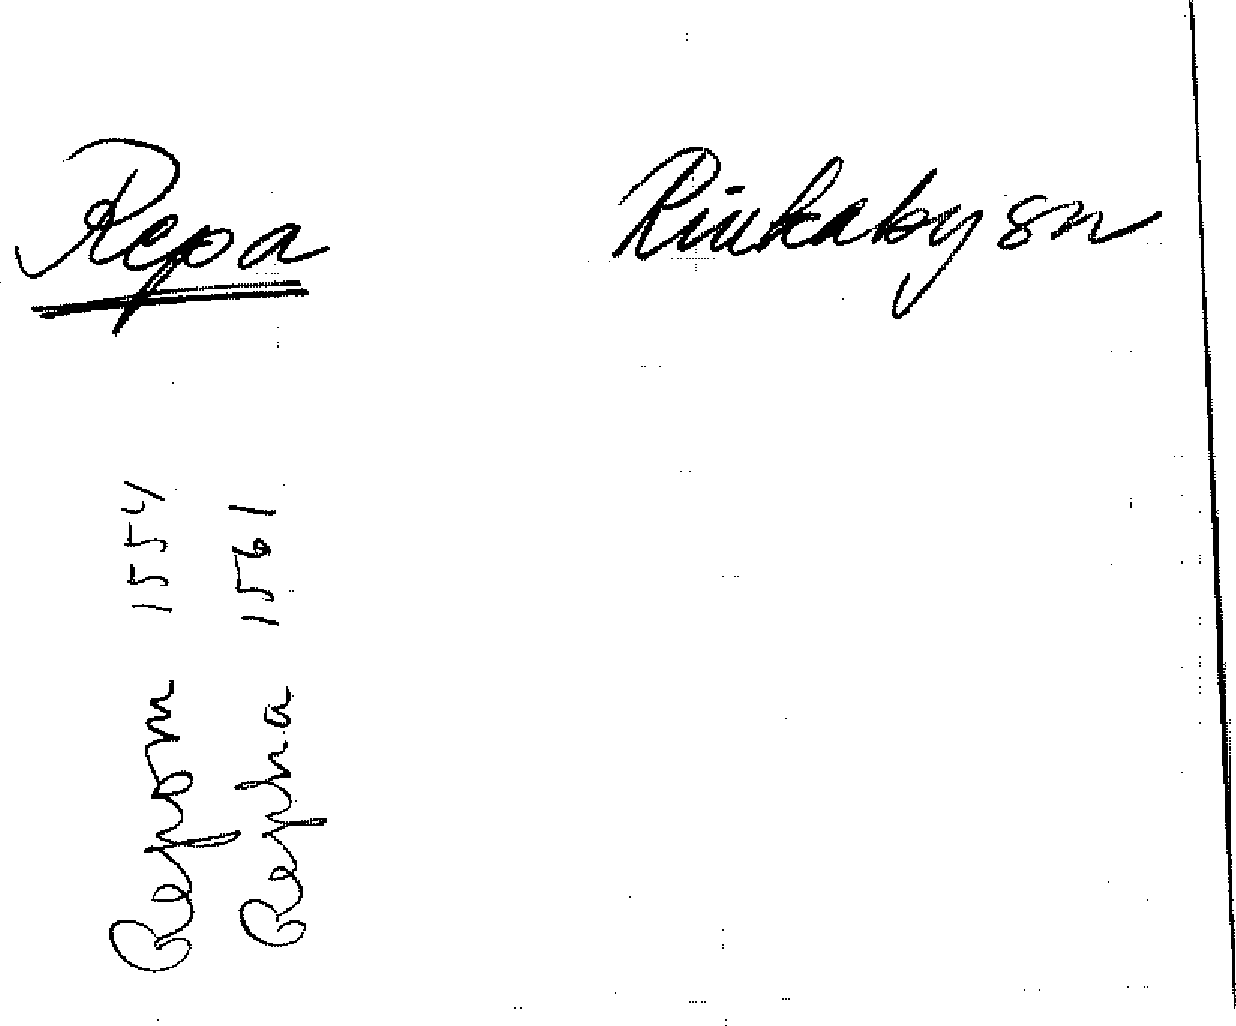 Repa Rinkaby sn
Repom 1554
Repha 1561